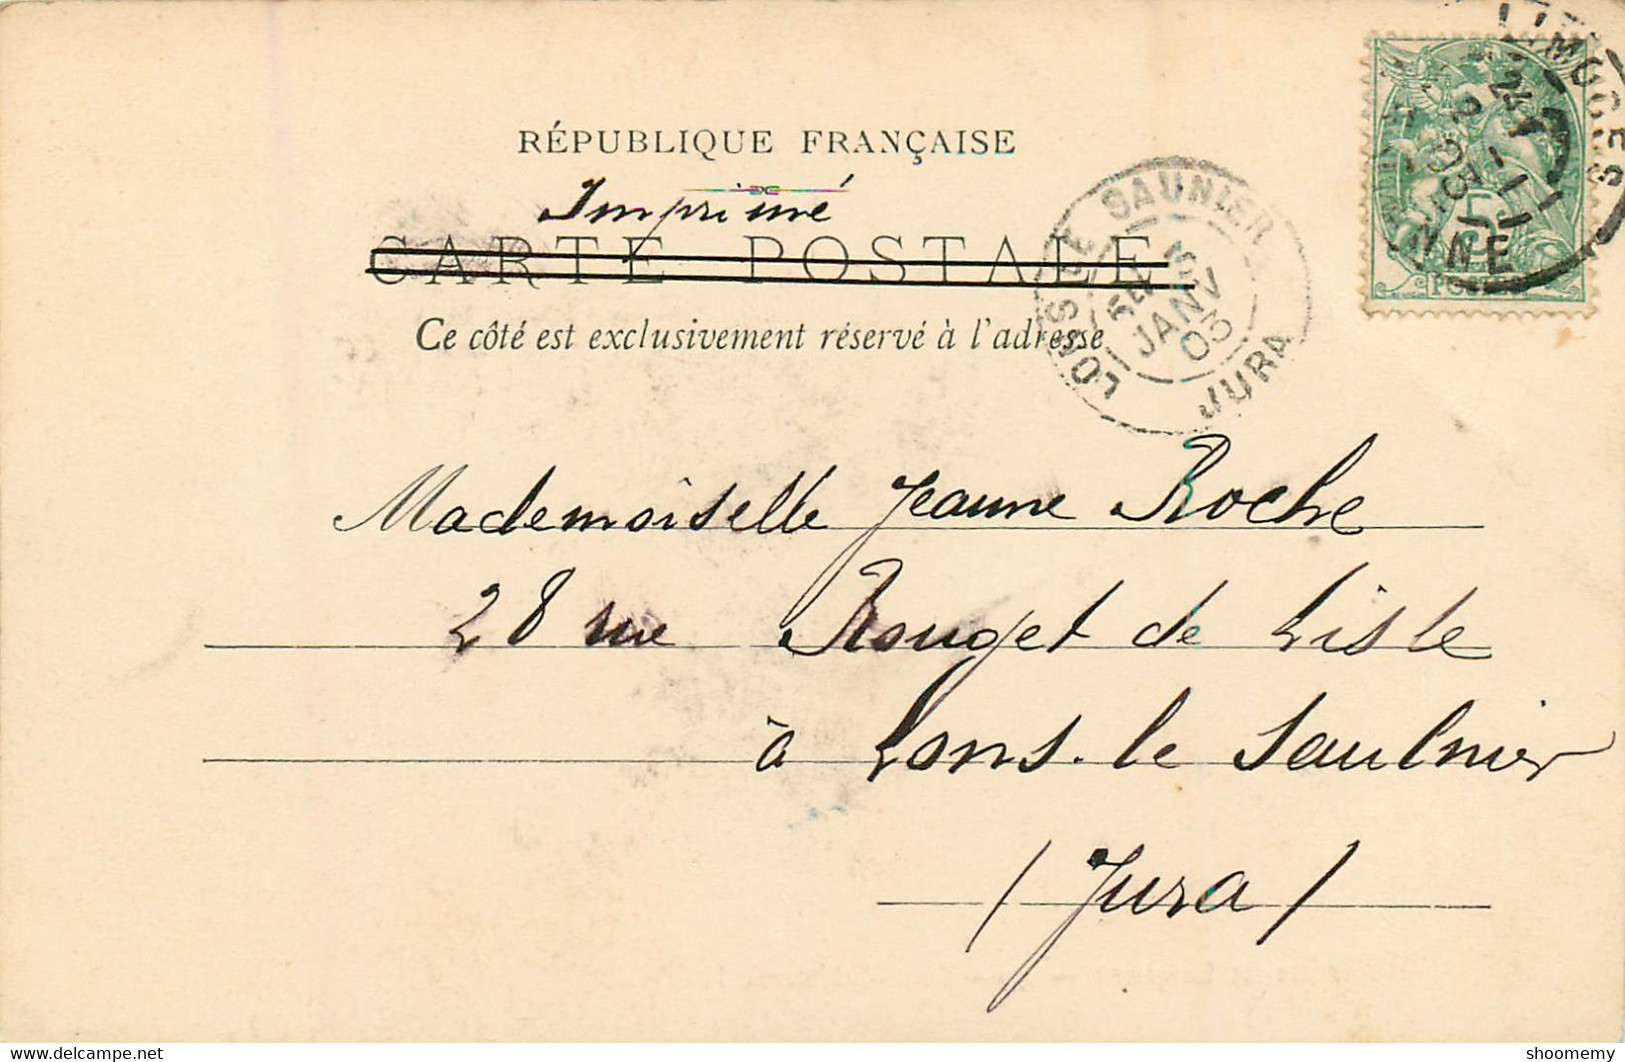 RÉPUBLIQUE FRANÇAISE
Imprimé
CARTE POSTALE
Ce côté est exclusivement réservé à l'adresse
LONS LE SAUNIER
JANV
03
JURA
LIMOGES
NNE
5
Mademoiselle Jeanne Roche
28 rue Rouget de Lisle
à Lons-le Saulnier
(Jura)
delcampe.net
shoomemy